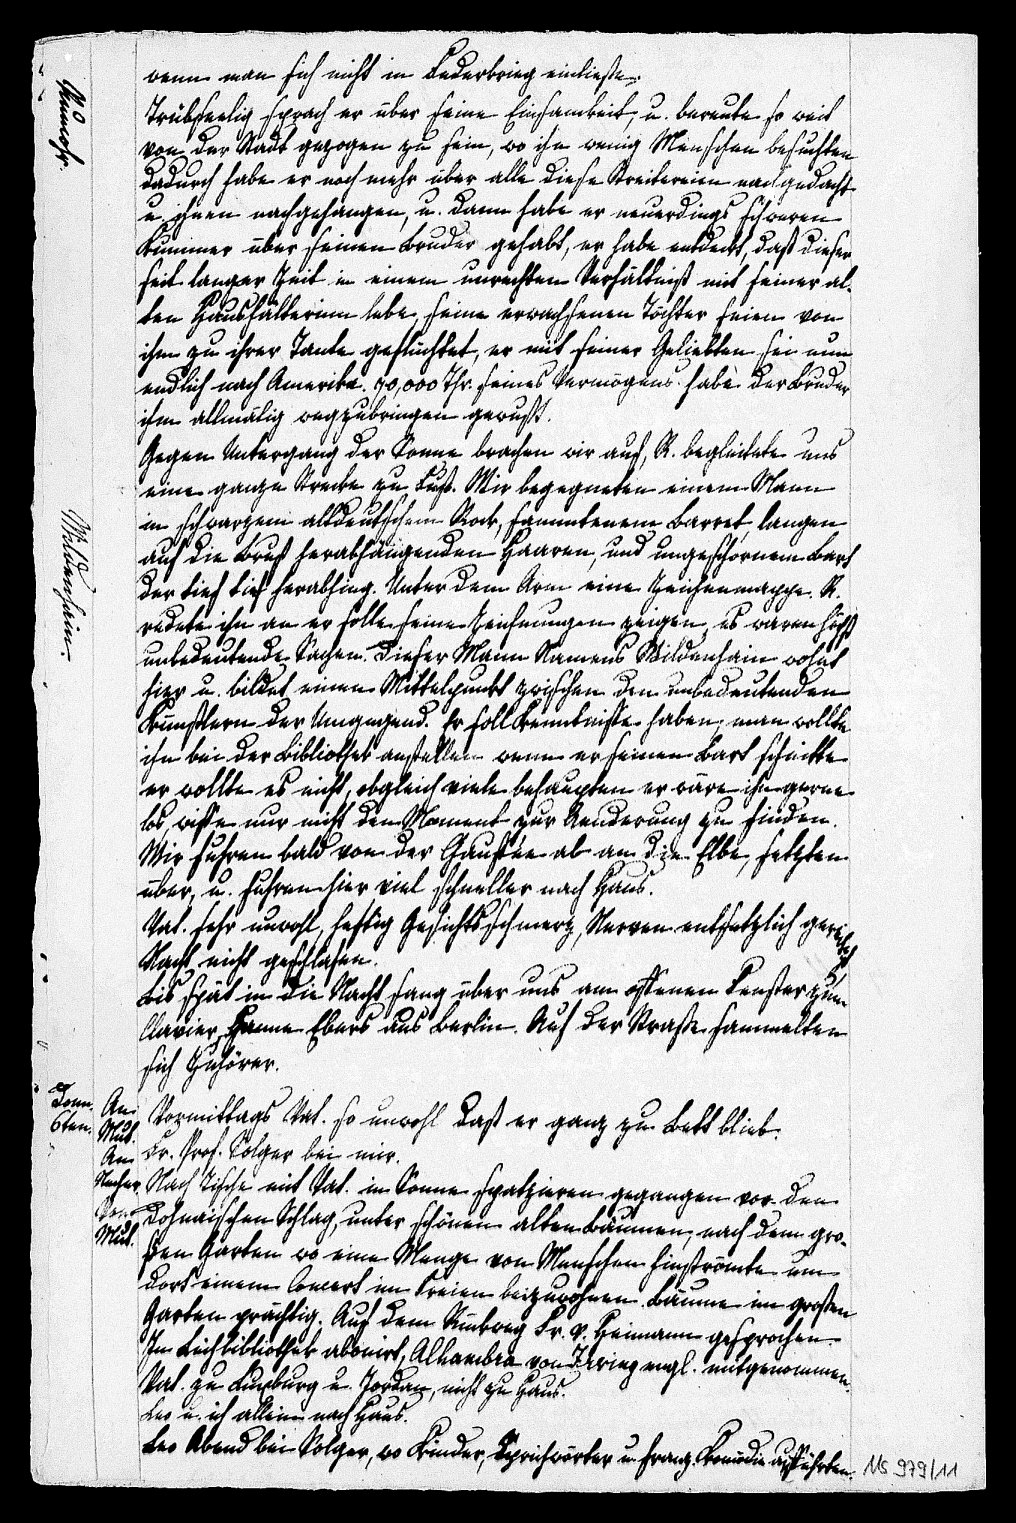 wenn man sich nicht in Federkrieg einließe.
Rumohr.
Trübseelig sprach er über seine Einsamkeit, u. bereute so weit
von der Stadt gezogen zu sein, wo ihn wenig Menschen besuchten
dadurch habe er noch mehr über alle diese Streitereien nachgedacht
u. ihnen nachgehangen, u. dann habe er neuerdings schweren
Kummer über seinen Bruder gehabt, er habe entdeckt, daß dieser
seit langer Zeit in einem unrechten Verhältniß mit seiner al-
ten Haushälterinn lebe, seine erwachsenen Töchter seien von
ihm zu ihrer Tante geflüchtet, er mit seiner Geliebten sei nun
endlich nach Amerika. 70,000 Thr. seines Vermögens habe der Bruder
ihm allmälig wegzubringen gewußt.
Gegen Untergang der Sonne brachen wir auf, R. begleitete uns
eine ganze Strecke zu Fuß. Wir begegneten einem Mann
Wildenhain.
in schwarzem altdeutschem Rock, sammtenem Barret, langen
auf die Brust herabhängenden Haaren, und ungeschornem Bart
der tief tief herabhing. Unter dem Arm eine Zeichenmappe. R.
redete ihn an er solle seine Zeichnungen zeigen, es waren höchst
unbedeutende Sachen. Dieser Mann Namens Wildenhain wohnt
hier u. bildet einen Mittelpunkt zwischen den unbedeutenden
Künstlern der Umgegend. Er soll Kenntnisse haben, man wollte
ihn bei der Bibliothek anstellen wenn er seinen Bart schnitte
er wollte es nicht, obgleich viele behaupten er wäre ihn gerne
los, wisse nur nicht den Moment zur Aenderung zu finden.
Wir fuhren bald von der Chaussée ab an die Elbe, setzten
über, u. fuhren hier viel schneller nach Haus.
Vat. sehr unwohl, heftig Gesichtsschmerz, Nerven entsetzlich gereitzt
Nacht nicht geschlafen.
Bis spät in die Nacht sang über uns am offenen Fenster zum
Clavier, Hanne Ebers aus Berlin. Auf der Straße sammelten
sich Zuhörer.
Donn.
6ten.
An
Mut.
An
Von
Mut.
Vormittags Vat. so unwohl daß er ganz zu Bett blieb.
Fr. Prof. Solger bei mir.
Nach Tische mit Vat. in Sonne spatzieren gegangen vor den
Dohnaischen Schlag, unter schönen alten Bäumen, nach dem gro-
ßen Garten wo eine Menge von Menschen hinströmte um
dort einem Concert im Freien beizuwohnen. Bäume im großen
Garten prächtig. Auf dem Rückweg Fr. v. Heimann gesprochen.
In Leihbibliothek abonirt, Alhambra von Irwing engl. mitgenommen.
Vat. zu Luxburg u. Jordan, nicht zu Haus.
Leo u. ich allein nach Haus.
Leo Abend bei Solger, wo Kinder, Sprichwörter u. franz. Komödie aufführten.
Ms 979/11